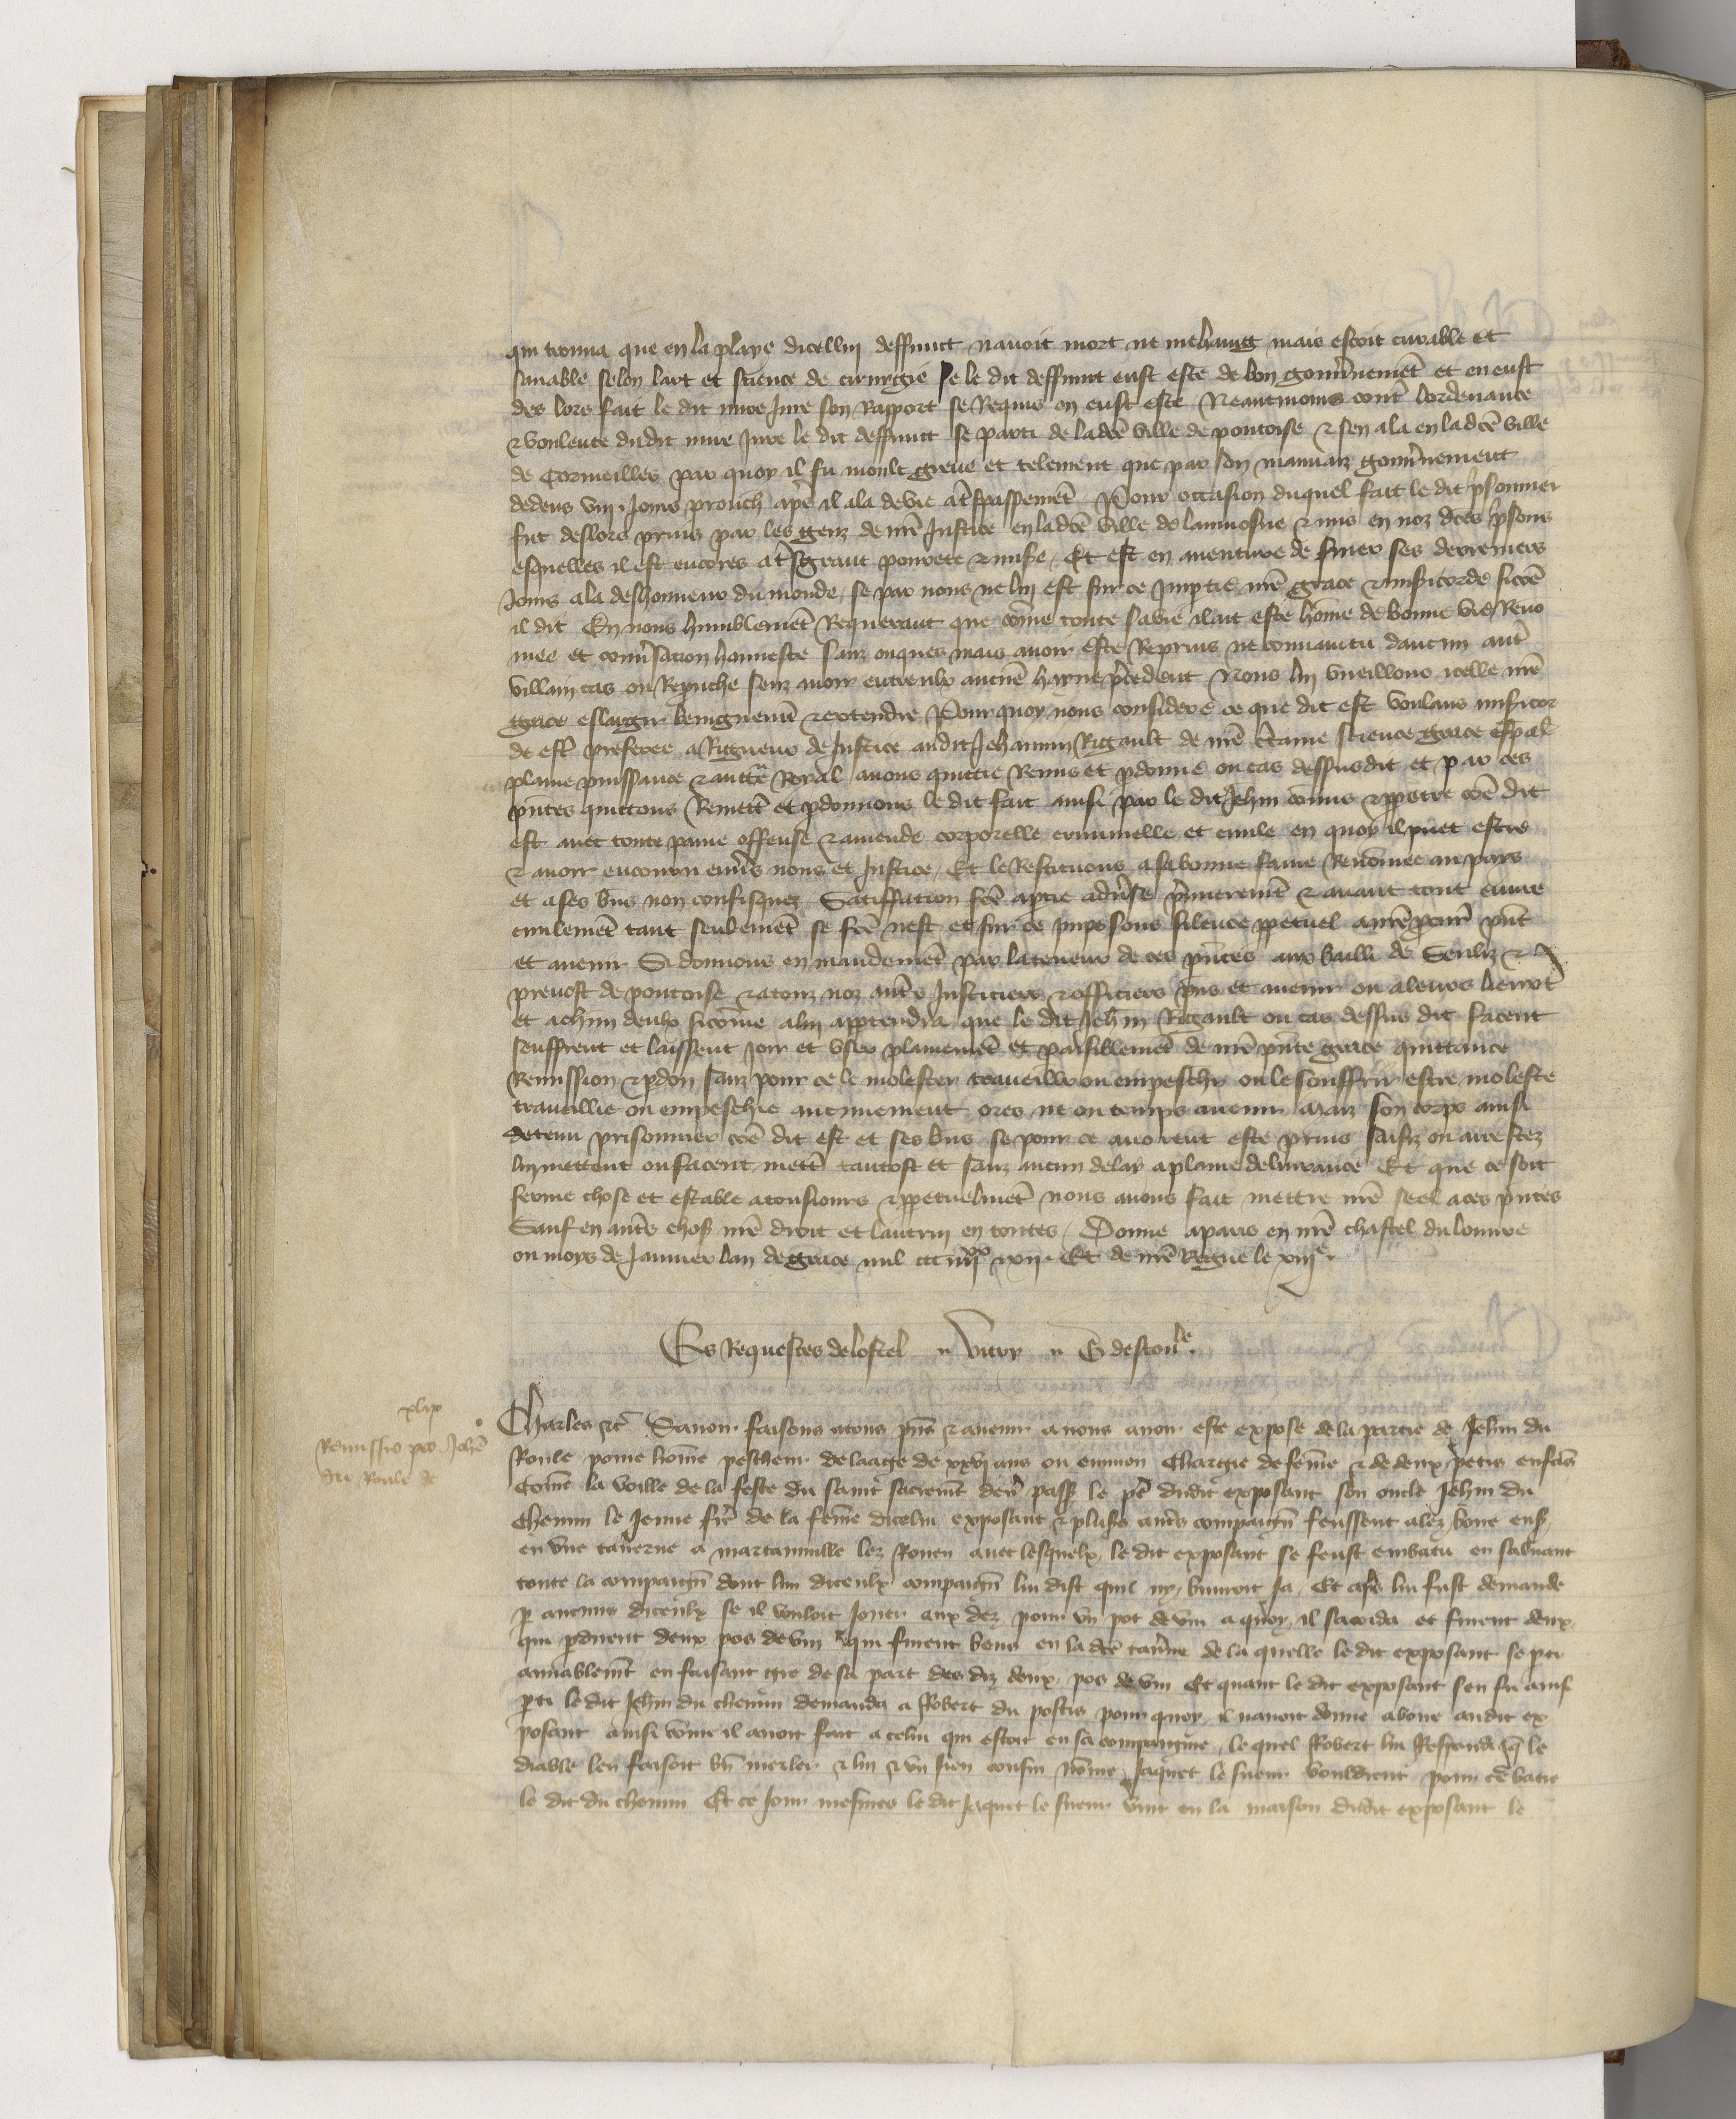 qui trouva que en la playe dicellui deffunct navoit mort ne mehaing mais estoit curable et
sanable selon lart et science de cirurgie Se le dit deffunct eust este de bon gouvnemēt et en eust
des lors fait le dit mire Jure son Rapport se Requis en eust este Neantmoins contr lordenance
& voulente dudit mire Jure le dit deffunct se parti de ladcē ville de pontoise & sen ala en ladcē ville
de Cormeilles par quoy il fu moult greve et telement que par son mauvaiz gouvnement
dedens viij. Jours prouch apr̄s il ala de vie a trespassemēt Pour occasion duquel fait le dit prisonnier
fut deslors prins par les genz de nrē Justice en ladcē ville de & mis en noz dcēs prisons
esquelles il est encores a tresgrant povrete & misere Et est en aventure de finer ses derreniers
Jours a la deshonneur du monde, se par nous ne lui est sur ce Imptie nrē grace & misicorde sicōe
il dit En nous humblemēt Requerant que cōme toute sa vie il ait este hōme de bonne vie Reno
mee et convsation honneste sanz onques mais avoir este Reprins ne convaincu daucun autr
villain cas ou Repruche senz avoir entreulx aucune hayne precedent Nous lui vueillons icelle nrē
grace eslargir benignemēt & extendre Pourquoy nous considere ce que dit est voulans misicor
de estr preferee a Rigueur de Justice audit Jehannin Rigault de nrē ctaine science grace espal
plaine puissance & auctē Royal avons quictie Remis et pdonne ou cas dessusdit et par ces
pntes quittons Remettōs et pdonnons le dit fait ainsi par le dit Jehan cōmis & ppetre cōe dit
est avec toute paine offense & amende corporelle criminelle et civile en quoy il puet estre
& avoir encouru envrs nous et Justice, Et le Restituons a sa bonne fame Renōmee au pays
et a ses bns non confisquez Satiffacion fcē a ptie advse prmierement & avant tout euvre
civilemēt tant seulement se fcē nest et sur ce Imposons silence ppetuel a nrē procur pnt
et avenir Si donnons en mandemēt par la teneur de ces pntes aux bailli de Senliz & 
prevost de pontoise & a touz noz autrs Justiciers & officiers pns et avenir ou a leurs lieuxt
et a chun deulx sicōme a lui appartendra que le dit Jehan Rigault ou cas dessus dit facent
seuffrent et laissent Joir et user plainemēt et paisiblemēt de nrē pnte grace quittance
Remission & pdon sanz pour ce le molester traveillier ou empeschr ou le souffrir estre moleste
traveillie ou empeschie aucunement ores ne ou temps avenir Maiz son corps ainsi
detenu prisonnier cōe dit est et ses bns se pour ce avoient este prins saisiz ou arrestez
lui mettent ou facent mettr tantost et sanz aucun delay a plaine delivrance Et que ce soit
ferme chose et estable a tousiours & ppetuelmēt nous avons fait mettre nrē seel a ces pntes
Sauf en autrs chos nrē droit et lautruy en toutes, Donne a paris en nrē chastel du louvre
ou moys de Janvier lan de grace mil ccc iiijxx xij. Et de nrē Regne le xiije.
Es Requestes de lostel n vitry n G destouil.
xlix
Remissio pro Johe
du Roule &
Charles &c Savoir faisons a tous pns & avenir a nous avoir este expose de la partie de Jehan du
Roule povre hōme pescheur de laage de xxvi ans ou environ Chargie de fēme & de deux petis enfās
Come la voille de la feste du saint sacremēt dernr passe le pe dudit exposant son oncle Jehan du
Chemin le Jeune frē de la fēme dicelui exposant & plusrs autrs compaignons feussent alez boire ens
en une taverne a martainville lez Rouen avec lesquelx le dit exposant se feust embatu en saluant
toute la compaignie dont lun diceulx compaigns lui dist quil ny buvroit Ja, Et aprs lui fust demande
p aucuns diceulx se il vouloit Jouer aux dez pour un pot de vin a quoy il sacorda et furent deux
qui pdirent deux pos de vin qui furent beuz en la dcē tavrne de la quelle le dit exposant se pti
amiablemēt en faisant gre de sa part des diz deux pos de vin Et quant le dit exposant sen fu ainsi
pti le dit Jehan du chemin demanda a Robert du postis pour quoy il navoit donne a boire audit ex
posant ainsi cōme il avoit fait a celui qui estoit en sa compaignie, lequel Robert lui Respondi que le
diable len faisoit bn mesler & lui & un sien cousin nōme Jaquet le sueur vouldrent pour ce batre
le dit du chemin Et ce Jour mesmes le dit Jaquet le sueur vint en la maison dudit exposant le